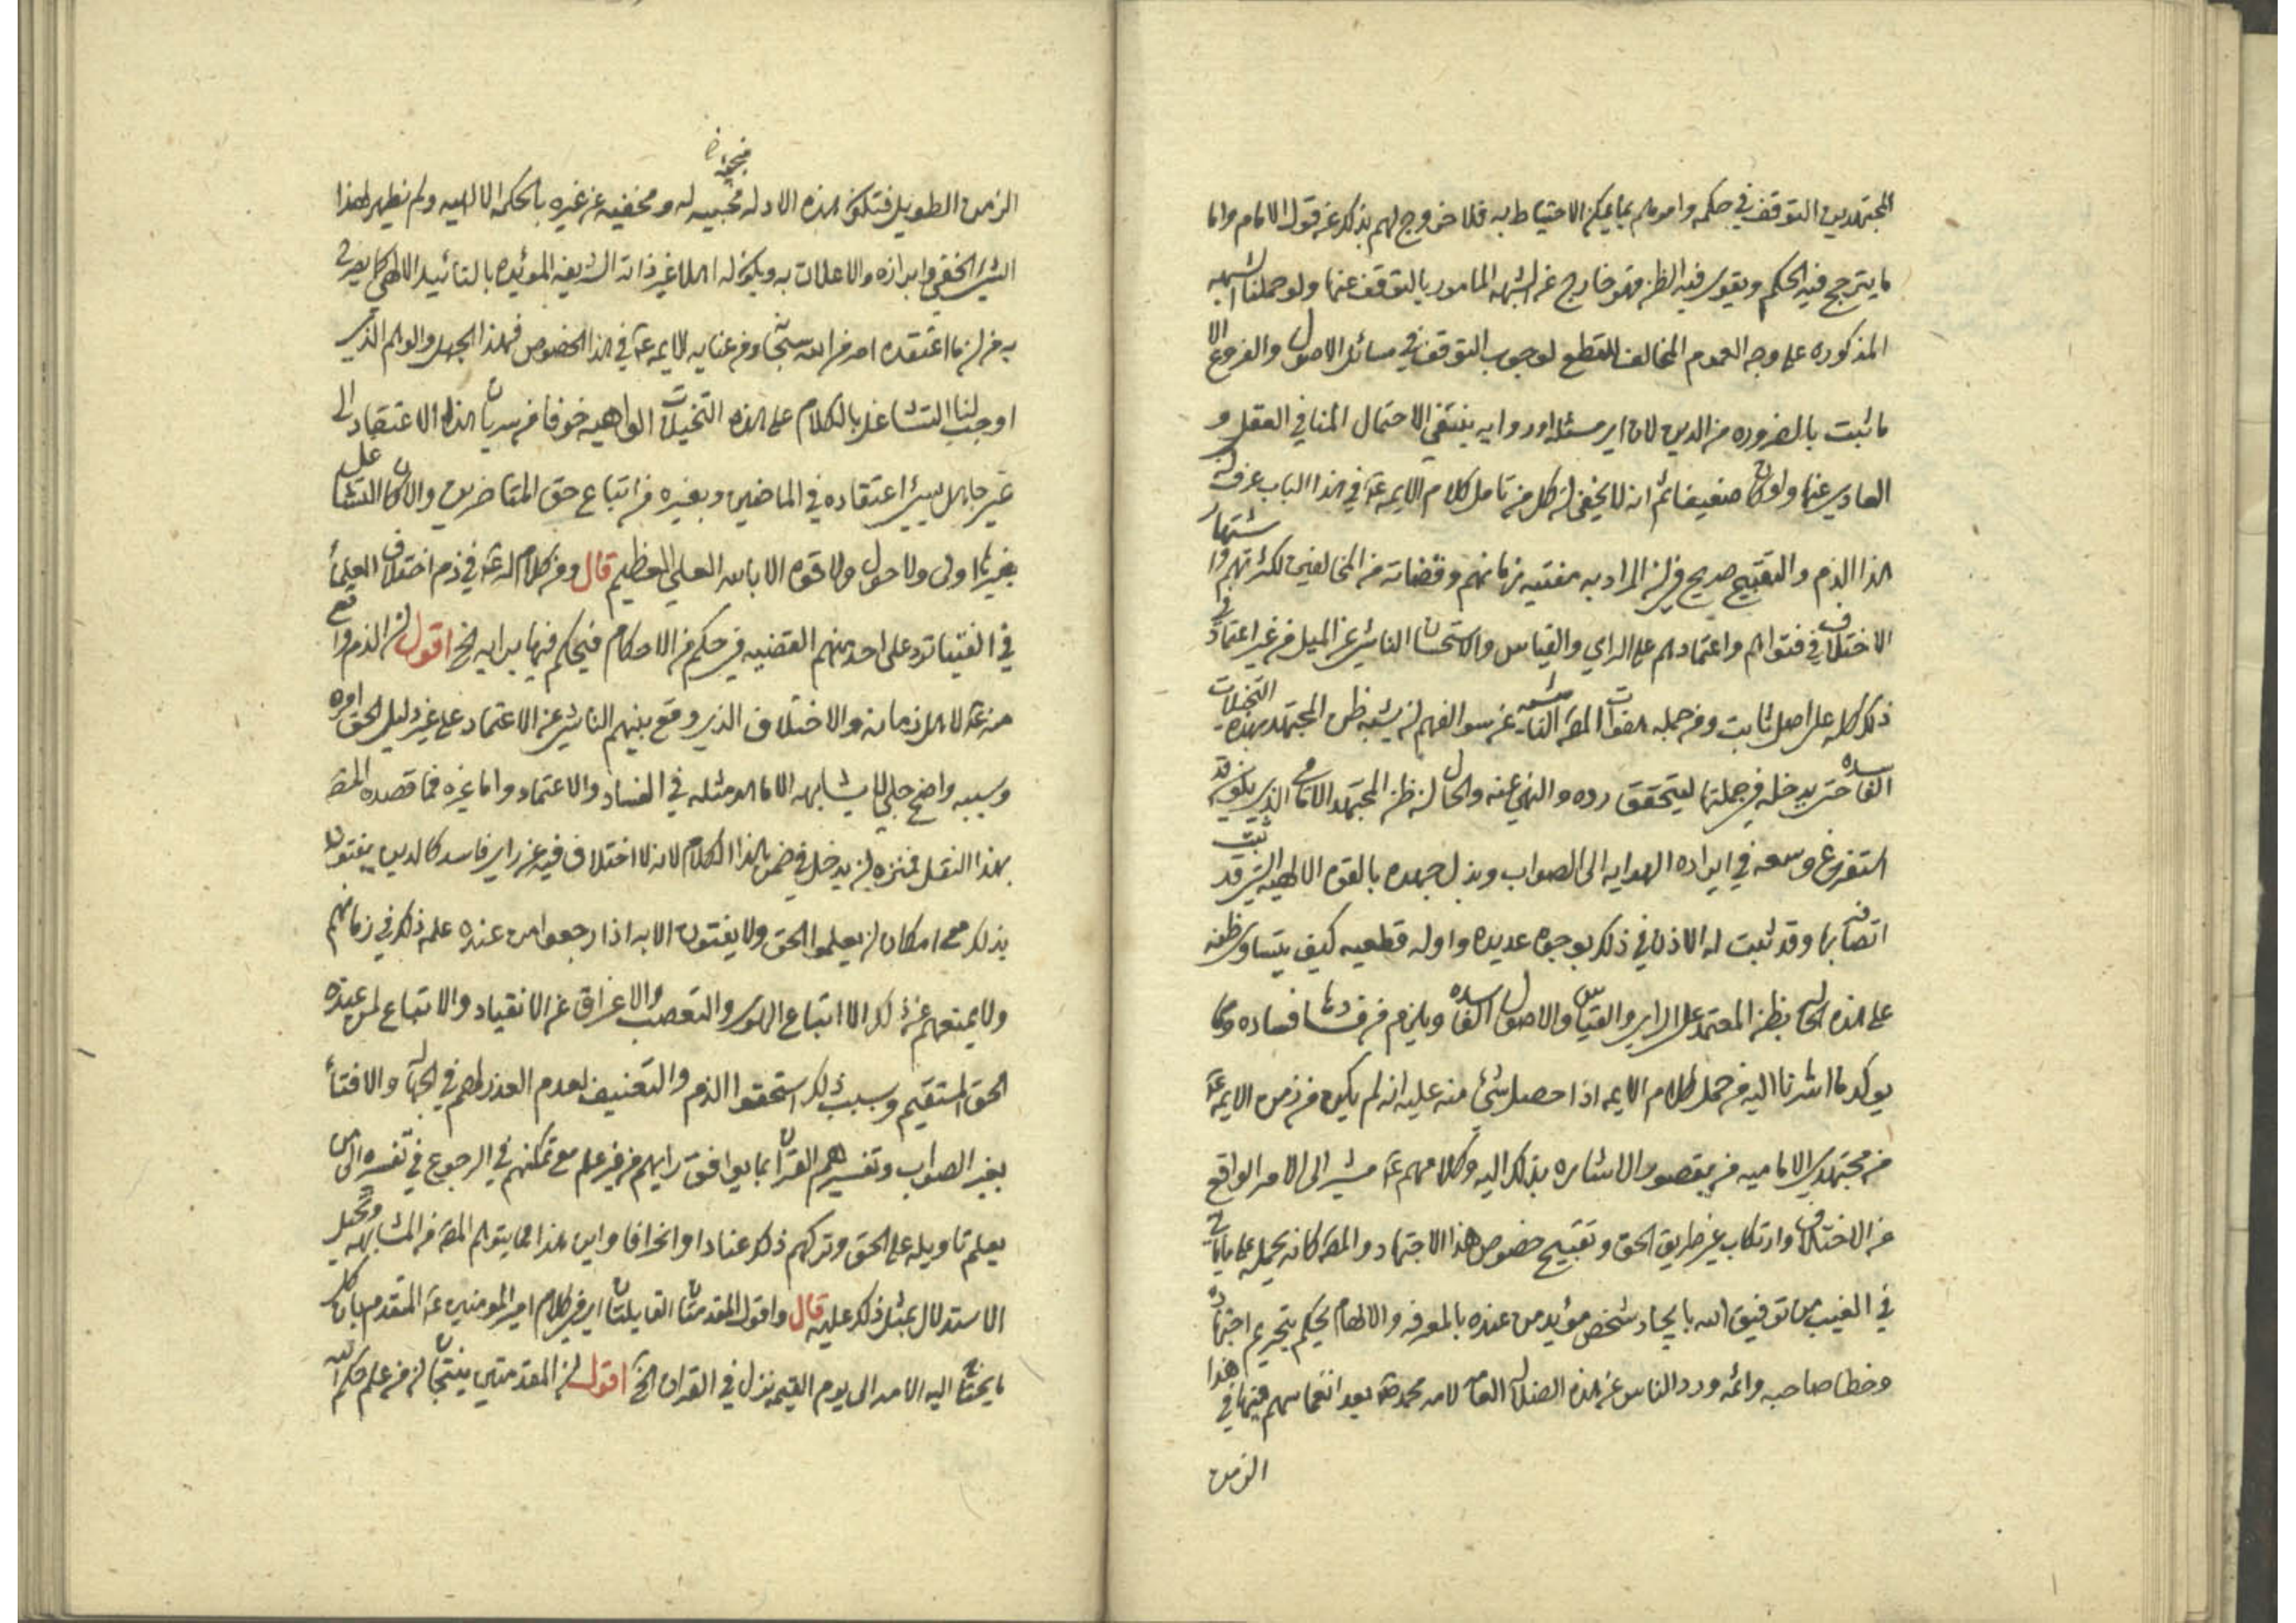 المجتهدين التوقف في حكمه وامرهم بما يمكن الاحتياط به فلا خروج لهم بذلك عن قول الامام واما
ما يترجح فيه الحكم ويقوى فيه الظن فهو خارج عن الشبهه المامور بالتوقف عنها ولو حملنا الشبهه
المذكوره على وجه العموم المخالف للقطع لوجوب التوقف في مسائل الاصول والفروع الا
ما ثبت بالضروره من الدين لان اي مسئله او روايه ينتفي الاحتمال المنافي العقلي و
العادي عنها ولو كان ضعيفا ثم انه لا يخفى ان كل من تامل كلام الايمه عم في هذا الباب عرف ان
هذا الذم والتقبيح صريح في ان المراد به مفتيه زمانهم وقضاته من المخالفين لكثرتهم واشتهار
الاختلاف في فتواهم واعتمادهم على الراي والقياس والاستحسان الناشي عن الميل من غير اعتماد في
ذلك كله على اصل ثابت ومن جمله هفوات المص الناشيه عن سوالفهم ان يشبه ظن المجتهد بهذه التخيلات
الفاسده حتى يدخله في جملتها ليتحقق رده والنهي عنه والحال ان ظن المجتهد الامامي الذي يكون قد
استفرغ وسعه في ايراده الهدايه الى الصواب وبذل جهده بالقوه الالهيه التي قد ثبت
اتصافه بها وقد ثبت له الاذن في ذلك بوجوه عديده وادله قطعيه كيف يتساوى ظنه
على هذه الحاله بظن المعتمد على الراي والقياس والاصول الفاسده ويلزم من فسادها فساده ومما
يوكد ما اشرنا اليه من حمل كلام الايمه اذا حصل شئ منه عليه انه لم يكن في زمن الايمه عم
من مجتهدي الاماميه من يقصد الاشاره بذلك اليه وكلامهم عم مشير الى الامر الواقع
من الاختلاف وارتكاب غير طريق الحق وتقبيح خصوص هذا الاجتهاد والمص كانه يحمله على ما ياتي
في الغيب من توفيق الله بايجاد شخص مؤيد من عنده بالمعرفه والالهام يحكم بتحريم اجتهاده
وخطا صاحبه واثمه ورد الناس عن هذه الضلاله العامه لامه محمد ص بعد انغماسهم فيها في هذا
الزمن
الزمن الطويل فتكون هذه الادله مخبيه له ومخفيه عن غيره بالحكمه الالهيه ولم يظهر لهذا
السر الخفي وابرازه والاعلان به ويكون له اهلا غير ذاته الشريفه المؤيده بالتائيد الالهي كما يصرح
به من ان ما اعتقده امر من الله سبحانه ومن عنايه الايمه عم في هذا الخصوص فهذا الجهل والوهم الذي
اوجب لنا التشاغل بالكلام على هذه التخيلات الواهيه خوفا من سريان هذا الاعتقاد الى
غير جاهل يسيئ اعتقاده في الماضين وبغيره من اتباع حق المتاخرين والا كان التشاغل
بغيرها اولى ولا حول ولا قوه الا بالله العلي العظيم قال ومن كلام له عم في ذم اختلاف العلماء
في الفتيا ترد على احد منهم القضيه في حكم من الاحكام فيحكم فيها برايه الخ اقول ان الذم واقع
منه عم لاهل زمانه والاختلاف الذي وقع بينهم الناشي عن الاعتماد على غير دليل الحق امره
وسببه واضح جلي لا يشابهه الا ما هو مثله في الفساد والاعتماد واما غيره فما قصده المص
بهذا النقل فمنزه ان يدخل في ضمن هذا الكلام لانه لا اختلاف فيه عن راي فاسد كالذين يفتون
بذلك مع امكان ان يعلموا الحق ولا يفتون الا به اذا رجعوا من عنده علم ذلك في زمانهم
ولا يمنعهم عن ذلك الا اتباع الهوى والتعصب والاعراق عن الانقياد والاتباع لمن عنده
الحق المستقيم وبسبب ذلك استحقوا الذم والتعنيف لعدم العذر لهم في الجهاله والافتاء
بغير الصواب وتفسيرهم القران بما يوافق رايهم من غير علم مع تمكنهم في الرجوع في تفسيره الى من
يعلم تاويله على الحق وتركهم ذلك عنادا وانحرافا واين هذا مما يتوهم المص من المشابهه وتخيل
الاستدلال بمثل ذلك عليه قال واقول المقدمتان القايلتان اي في كلام امير المومنين عم المتقدم بان كل
ما يحتاج اليه الامه الى يوم القيمه نزل في القران الخ اقول ان المقدمتين ينتجان ان من علم حكم الله